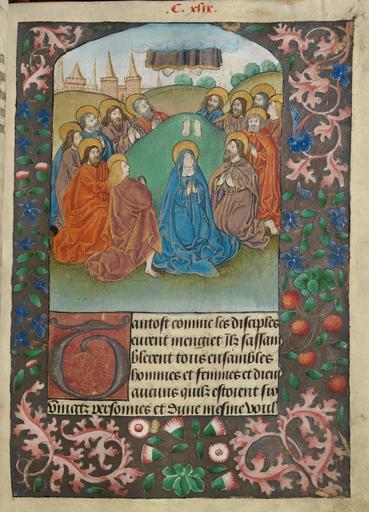 C. xlix.
Tantost comme les disciples
eurent mengiet ilz sassam
blerent tous ensambles
hommes et femmes et dient
aucuns quilz estoient six
vingtz personnes et dune mesme voul